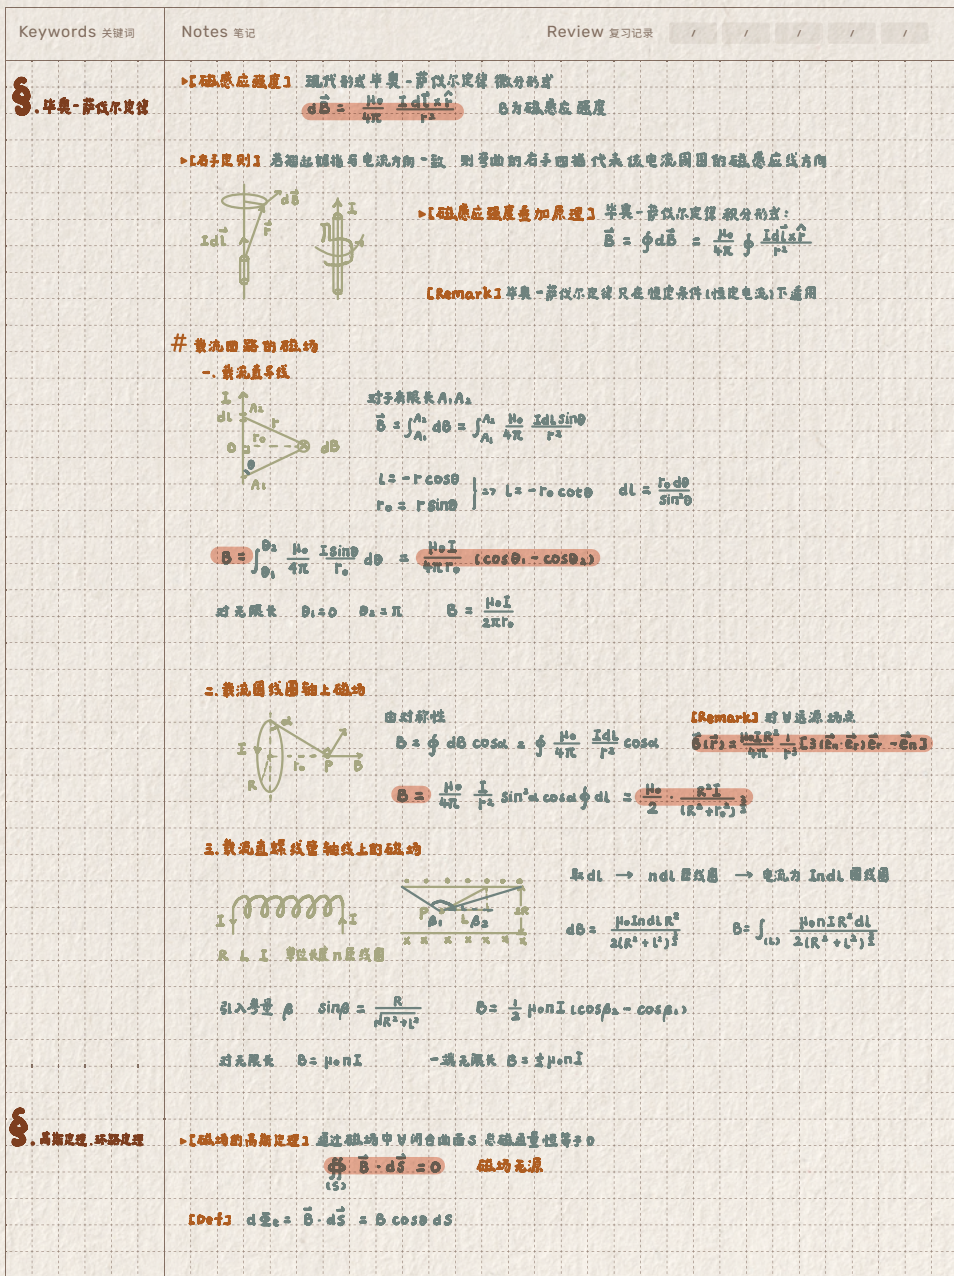 Keywords 关键词
Notes 笔记
Review 复习记录 / / / / /
§. 毕奥-萨伐尔定律
▸[磁感应强度] 现代形式毕奥-萨伐尔定律 微分形式
dB⃗ = μ₀/4π Idl⃗×r̂/r² B为磁感应强度
▸[右手定则] 若翘起拇指与电流方向一致 则弯曲的右手四指代表该电流周围的磁感应线方向
dB⃗
Idl⃗ r⃗
I
▸[磁感应强度叠加原理] 毕奥-萨伐尔定律 积分形式:
B⃗ = ∮dB⃗ = μ₀/4π ∮ Idl⃗×r̂/r²
[Remark] 毕奥-萨伐尔定律只在恒定条件(恒定电流)下适用
# 载流回路的磁场
一. 载流直导线
I A₂ dl r r₀ O dB θ A₁
对于有限长A₁A₂
B⃗ = ∫_A₁^A₂ dB = ∫_A₁^A₂ μ₀/4π Idlsinθ/r²
l = -rcosθ
r₀ = rsinθ
} => l = -r₀cotθ dl = r₀dθ/sin²θ
B = ∫_θ₁^θ₂ μ₀/4π Isinθ/r₀ dθ = μ₀I/4πr₀ (cosθ₁ - cosθ₂)
对无限长 θ₁=0 θ₂=π B = μ₀I/2πr₀
二. 载流圆线圈轴上磁场
α I r₀ P B R
由对称性
B = ∮ dB cosα = ∮ μ₀/4π Idl/r² cosα
[Remark] 对∀远源场点
B⃗(r⃗) = μ₀IR²/4π 1/r³ [3(e⃗ₙ·e⃗ᵣ)e⃗ᵣ - e⃗ₙ]
B = μ₀/4π I/r² sin²α cosα ∮ dl = μ₀/2 · R²I/(R²+r₀²)^(3/2)
三. 载流直螺线管轴线上的磁场
I I
R L I 单位长度n匝线圈
P β₁ L β₂ 2R
取dl → ndl匝线圈 → 电流为 Indl 圆线圈
dB = μ₀IndlR²/2(R²+l²)^(3/2) B = ∫_(L) μ₀nIR²dl/2(R²+l²)^(3/2)
引入参量 β sinβ = R/√(R²+l²) B = 1/2 μ₀nI(cosβ₂ - cosβ₁)
对无限长 B = μ₀nI 一端无限长 B = ½μ₀nI
§. 高斯定理.环路定理
▸[磁场的高斯定理] 通过磁场中∀闭合曲面S 总磁通量恒等于0
∯_(S) B⃗·dS⃗ = 0 磁场无源
[Def] dΦ = B⃗·dS⃗ = B cosθ dS